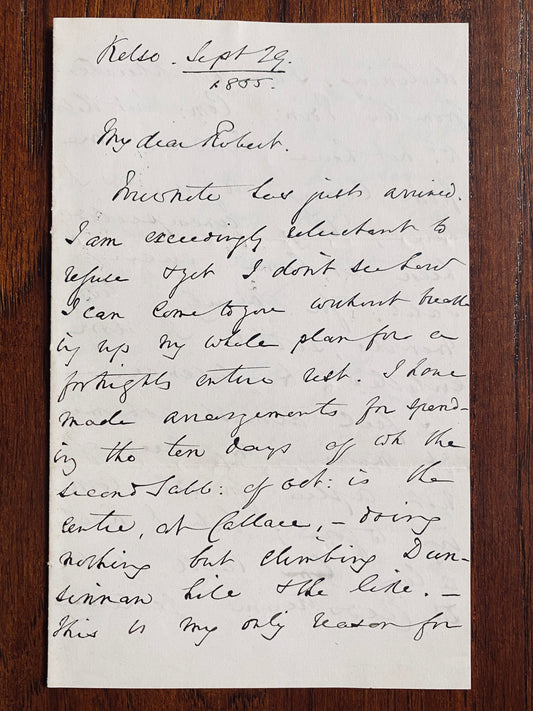 Kelso. Sept 29.
1855.
My dear Robert.
Your note has just arrived.
I am exceedingly reluctant to
refuse & yet I don't see how
I can come to you without break
ing up my whole plan for a
fortnights entire rest. I have
made arrangements for spend-
ing the ten days of wh the
second Sabb: of Oct: is the
centre, at Collace, – doing
nothing but climbing Dun-
sinnan hill & the like. –
This is my only reason for